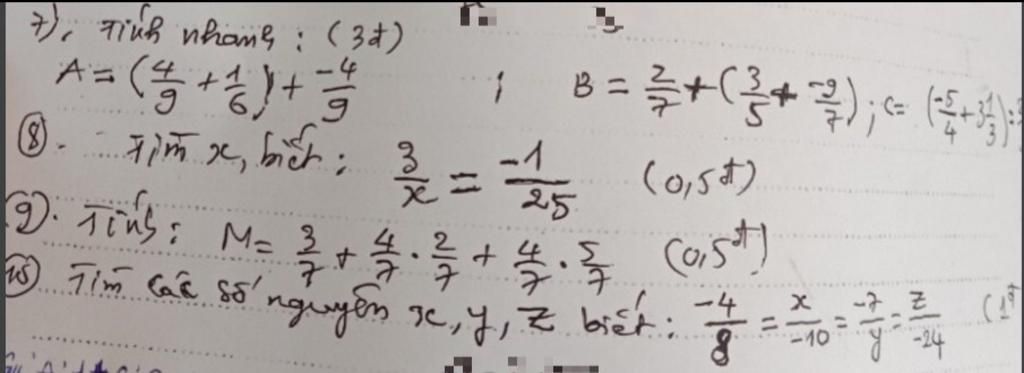 7), Tính nhanh : (3đ)
A = (4/9 + 1/6) + -4/9 ; B = 2/7 + (3/5 + -9/7) ; C = (-5/4 + 3 1/3) :
⑧. Tìm x, biết : 3/x = -1/25 (0,5đ)
⑨. Tính : M = 3/7 + 4/7 . 2/7 + 4/7 . 5/7 (0,5đ)
Tìm các số nguyên x, y, z biết : -4/8 = x/-10 = -7/y = z/-24 (1đ